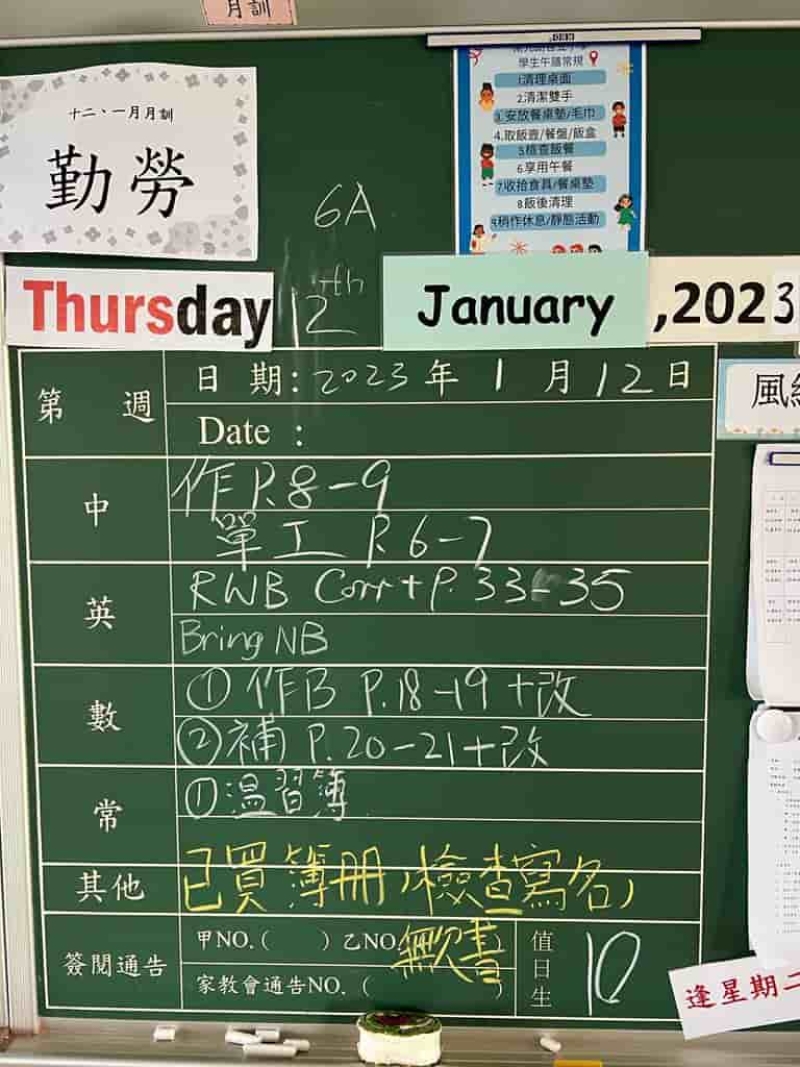 月訓
十二、一月月訓
勤勞
學生午膳常規
1清理桌面
2.清潔雙手
3.安放餐桌墊/毛巾
4.取飯壺/餐盤/飯盒
5檢查飯餐
6.享用午餐
7.收拾食具/餐桌墊
8.飯後清理
9.稍作休息/靜態活動
6A
Thursday 12th January ,2023
第 週 日 期: 2023 年 1 月 12 日
Date :
中 作 P.8-9
單工 P.6-7
英 RWB Corr + P.33-35
Bring NB
數 ①作B P.18-19+改
②補 P.20-21+改
常 ①溫習簿
其他 已買簿冊(檢查寫名)
簽閱通告 甲NO.( ) 乙NO.( )
無欠書
家教會通告NO.( )
值日生 10
逢星期二